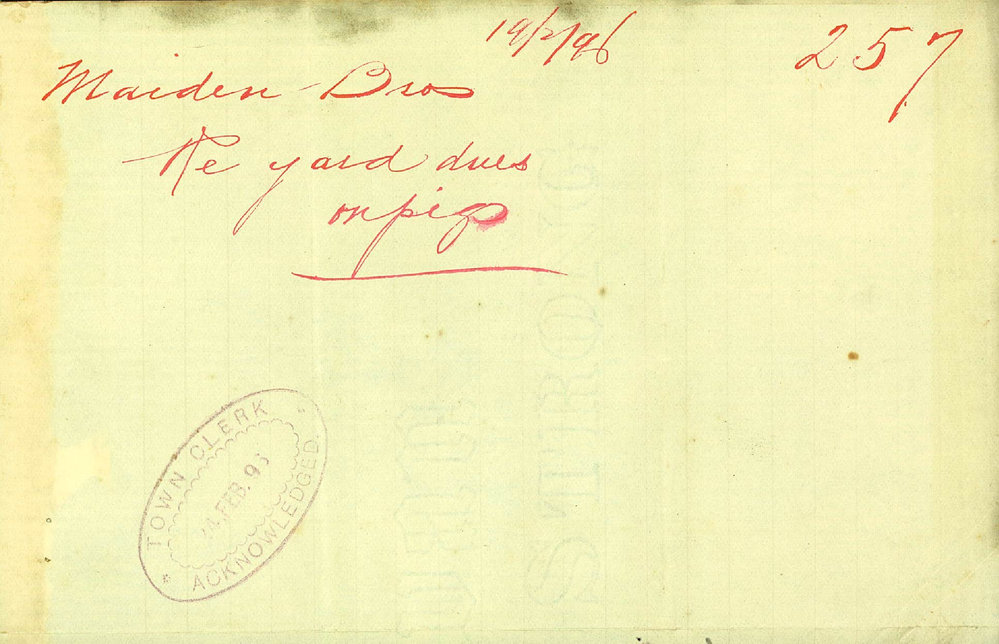 19/2/96
257
Maiden Bros
Re yard dues
on pigs
TOWN CLERK
FEB. 9
ACKNOWLEDGED
STRONG